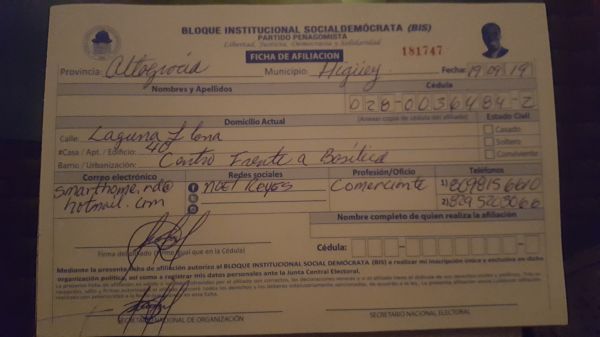 BLOQUE INSTITUCIONAL SOCIALDEMÓCRATA (BIS)
PARTIDO PEÑAGOMISTA
Libertad, Justicia, Democracia y Solidaridad
FICHA DE AFILIACION
181747
Provincia: Altagracia Municipio: Higüey Fecha: 19/09/19
Nombres y Apellidos Cédula
028-0036484-2
Domicilio Actual (Anexar copia de cédula del afiliado) Estado Civil
Calle: Laguna Llana Casado
#Casa / Apt. / Edificio: 40 Soltero
Barrio / Urbanización: Centro Frente a Basílica Conviviente
Correo electrónico Redes sociales Profesión/Oficio Teléfonos
smarthome.rd@ Noel Reyes Comerciante 1)
hotmail.com 2)
Nombre completo de quien realiza la afiliación
Firma del afiliado (Firme igual que en la Cédula) Cédula:
Mediante la presente ficha de afiliación autorizo al BLOQUE INSTITUCIONAL SOCIAL DEMÓCRATA (BIS) a realizar mi inscripción única y exclusiva en dicha
organización política, así como a registrar mis datos personales ante la Junta Central Electoral.
SECRETARIO NACIONAL DE ORGANIZACIÓN SECRETARIO NACIONAL ELECTORAL